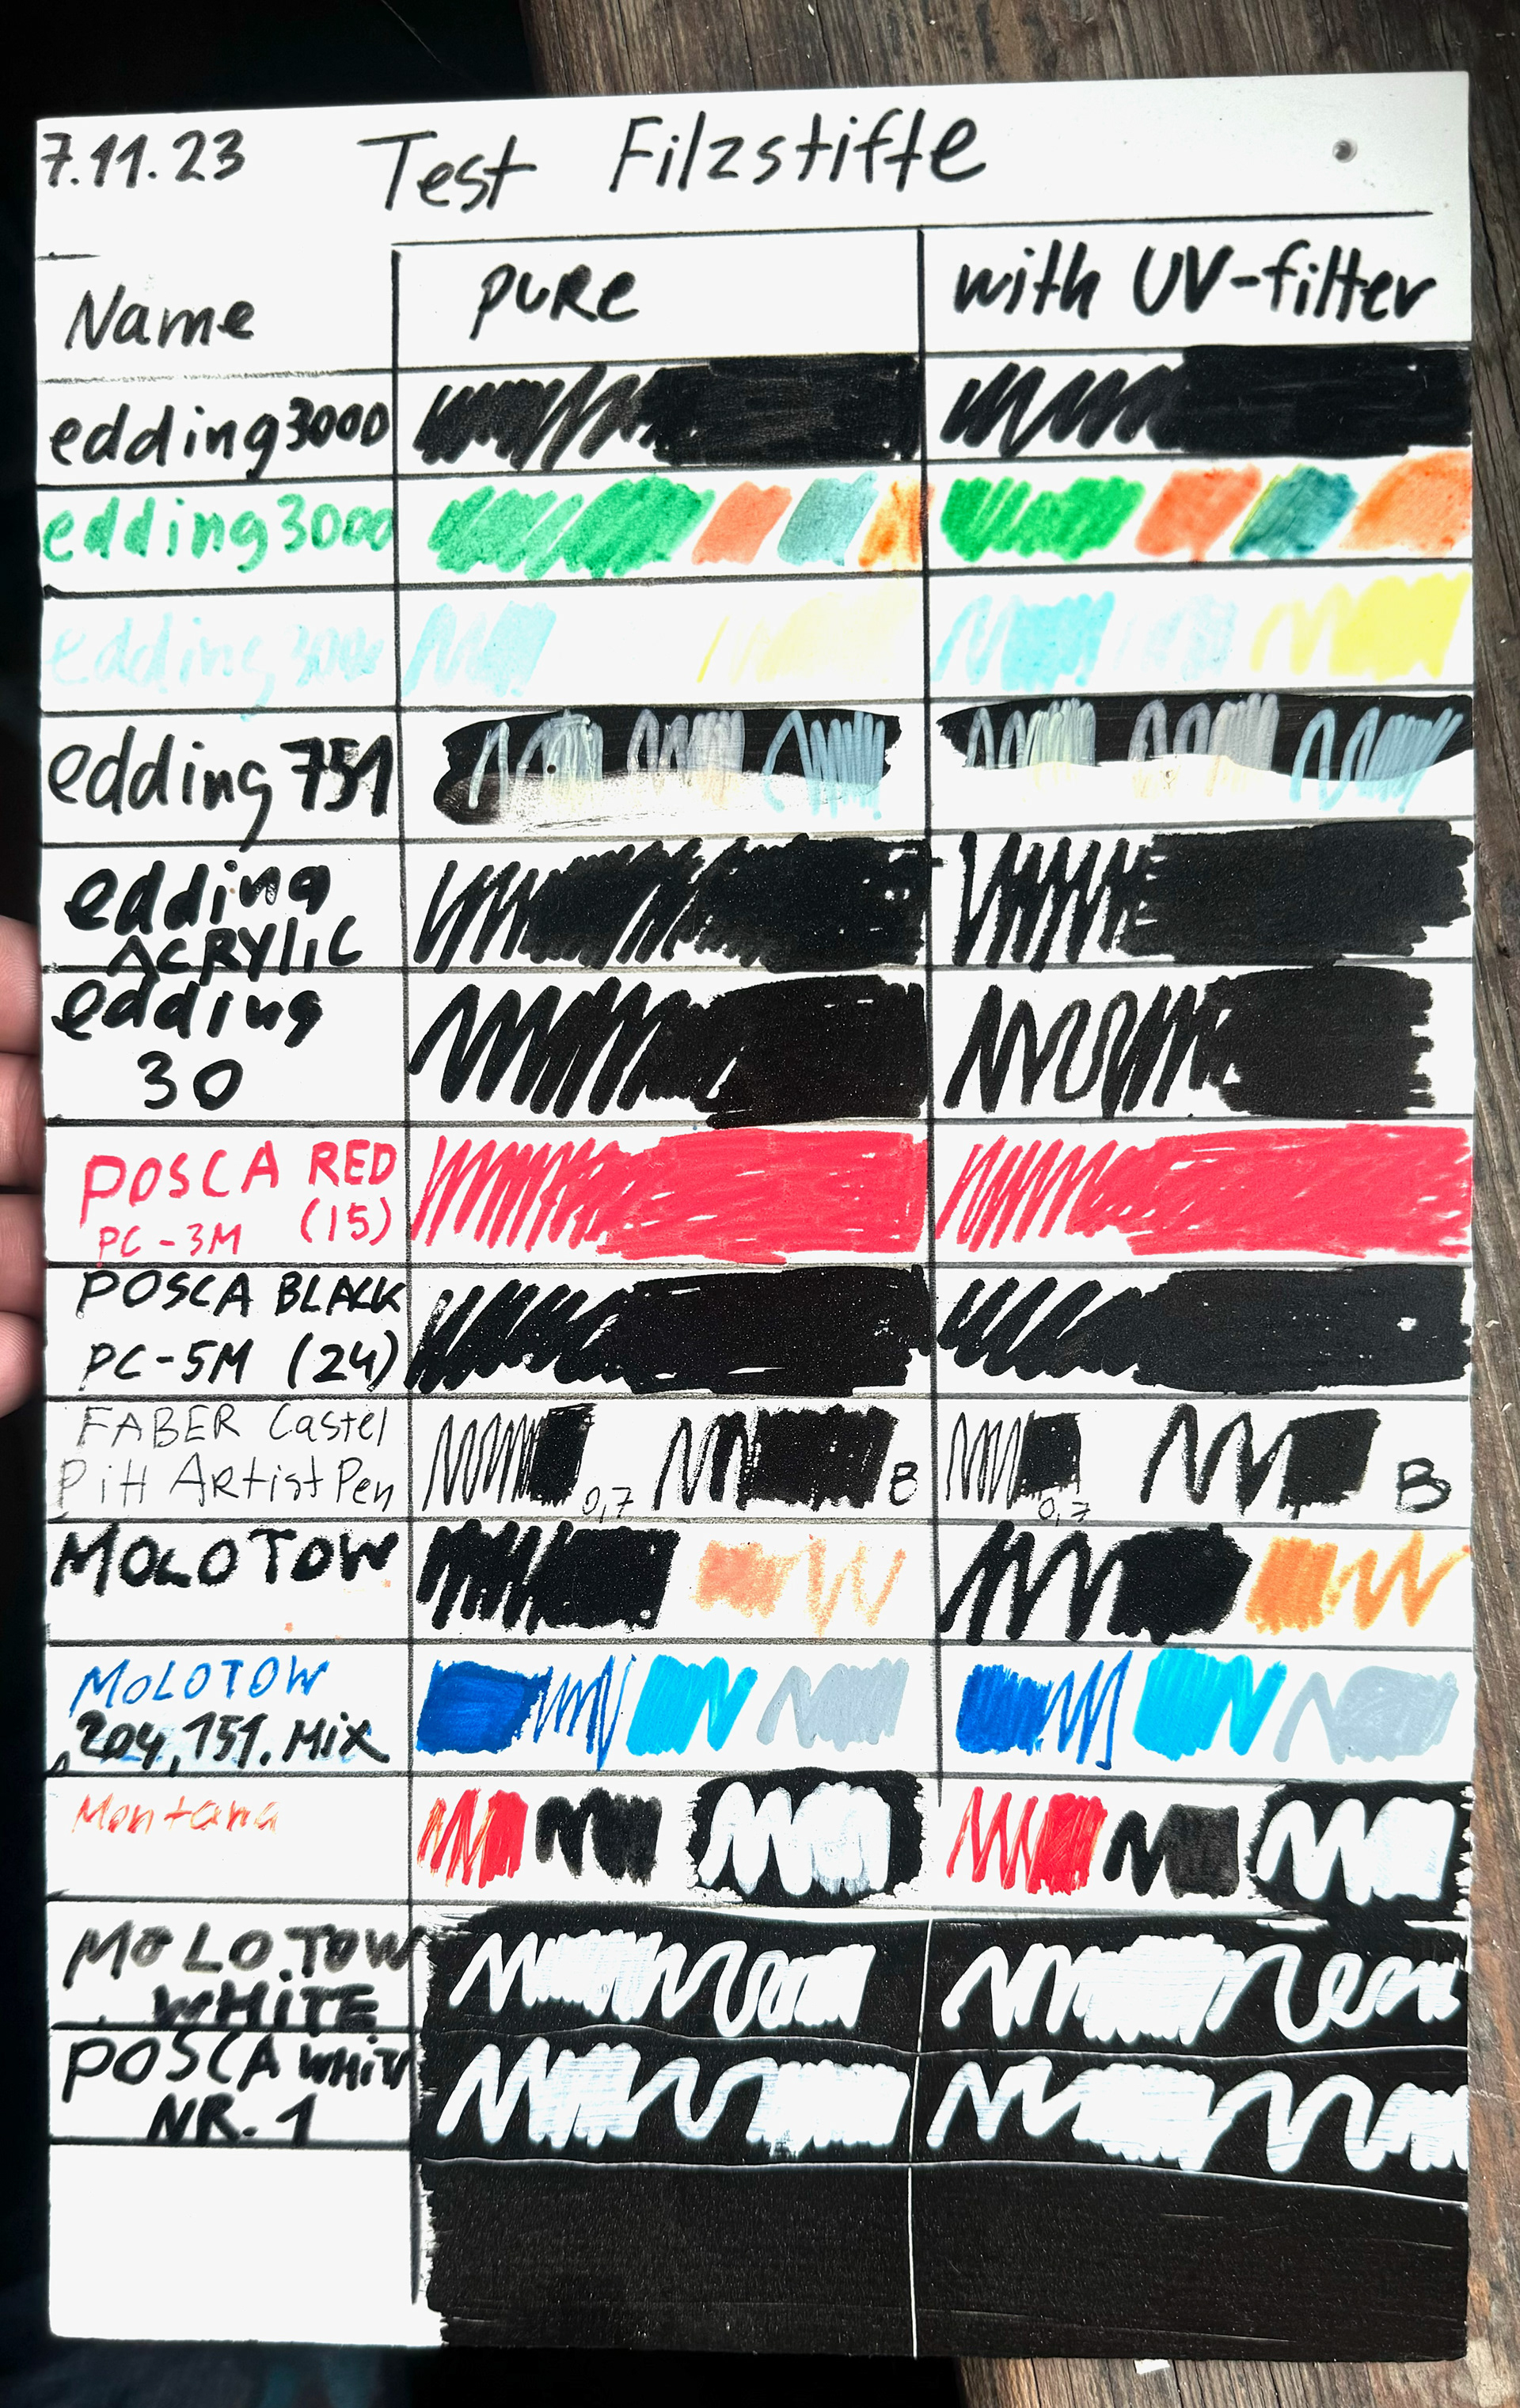 7.11.23 Test Filzstifte
Name pure with UV-filter
edding 3000
edding 3000
edding 3000
edding 751
edding
ACRYLIC
edding
30
POSCA RED
PC-3M (15)
POSCA BLACK
PC-5M (24)
FABER Castel
Pitt Artist Pen 0,7 B 0,7 B
MOLOTOW
MOLOTOW
204, 151. Mix
Montana
MOLOTOW
WHITE
POSCA WHITE
NR. 1